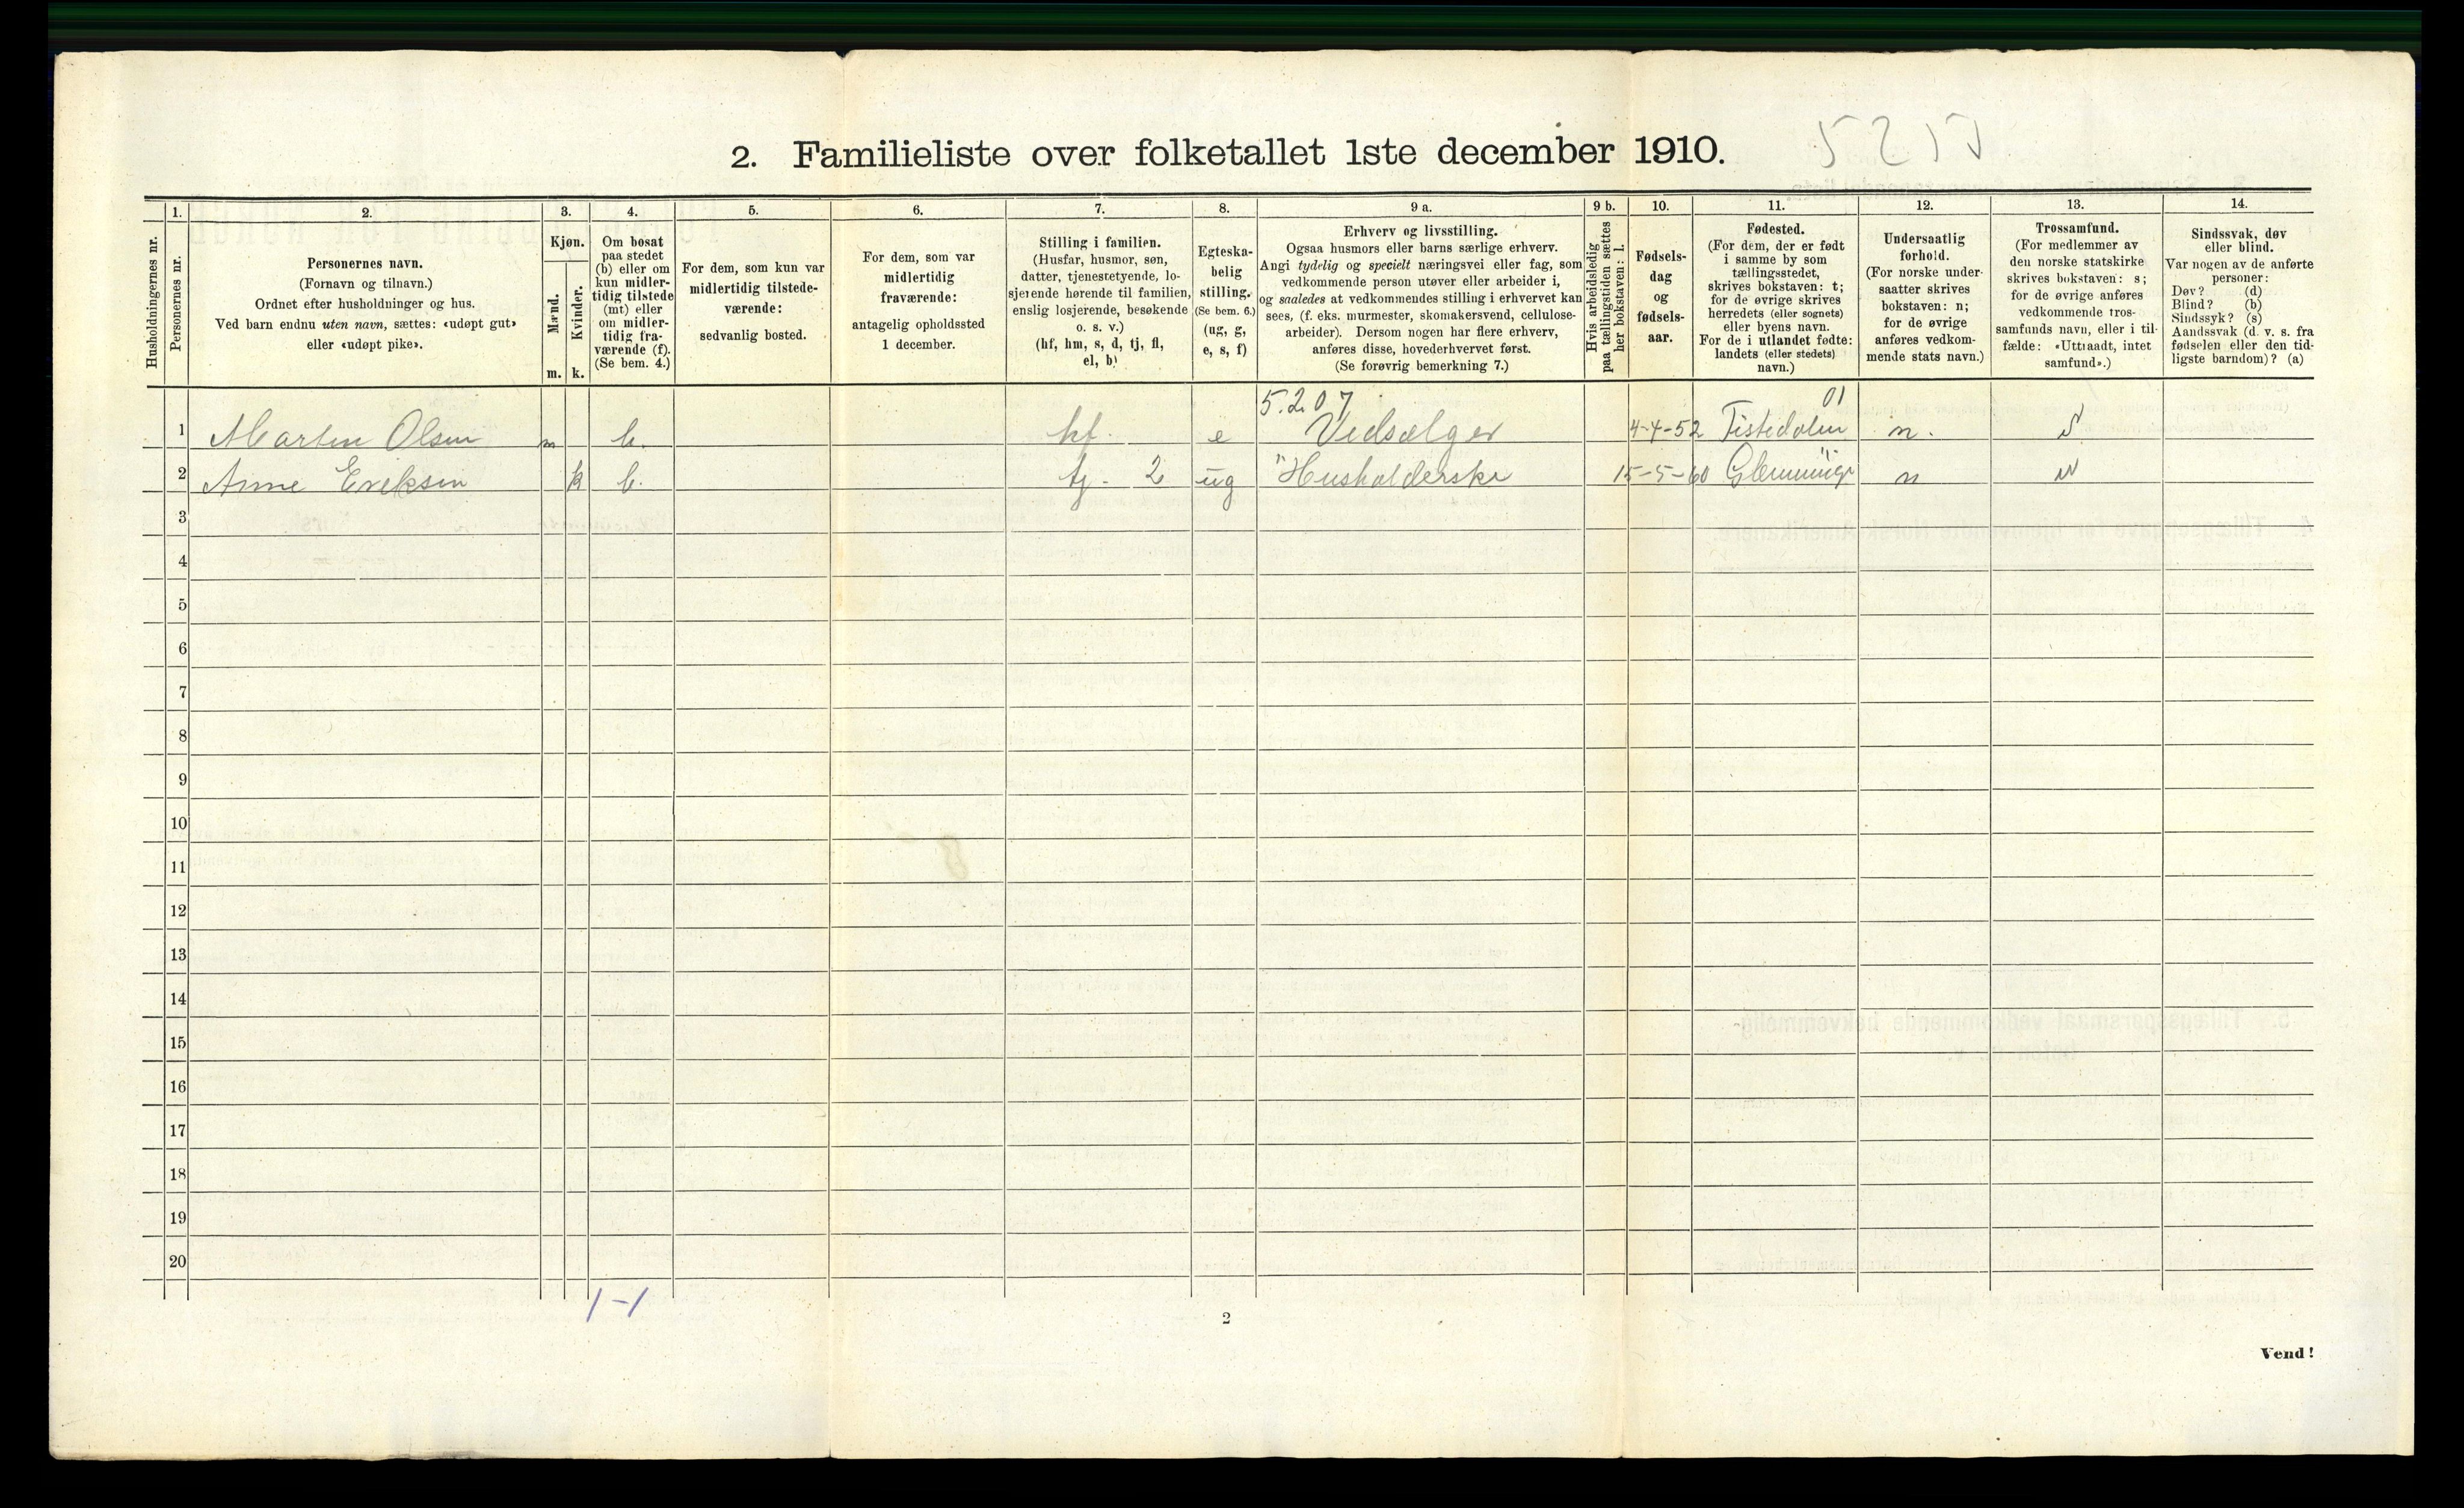 2. Familieliste over folketallet 1ste december 1910.
5215
Husholdningernes nr.
1.
Personernes nr.
2.
Personernes navn.
(Fornavn og tilnavn.)
Ordnet efter husholdninger og hus.
Ved barn endnu uten navn, sættes: «udøpt gut»
eller «udøpt pike».
3.
Kjøn.
Mænd.
Kvinder.
m.
k.
4.
Om bosat
paa stedet
(b) eller om
kun midler-
tidig tilstede
(mt) eller
om midler-
tidig fra-
værende (f).
(Se bem. 4.)
5.
For dem, som kun var
midlertidig tilstede-
værende:
sedvanlig bosted.
6.
For dem, som var
midlertidig
fraværende:
antagelig opholdssted
1 december.
7.
Stilling i familien.
(Husfar, husmor, søn,
datter, tjenestetyende, lo-
sjerende hørende til familien,
enslig losjerende, besøkende
o. s. v.)
(hf, hm, s, d, tj, fl,
el, b)
8.
Egteska-
belig
stilling.
(Se bem. 6.)
(ug, g,
e, s, f)
9 a.
Erhverv og livsstilling.
Ogsaa husmors eller barns særlige erhverv.
Angi tydelig og specielt næringsvei eller fag, som
vedkommende person utøver eller arbeider i,
og saaledes at vedkommendes stilling i erhvervet kan
sees, (f. eks. murmester, skomakersvend, cellulose-
arbeider). Dersom nogen har flere erhverv,
anføres disse, hovederhvervet først.
(Se forøvrig bemerkning 7.)
9 b.
Hvis arbeidsledig
paa tællingstiden sættes
her bokstaven: l.
10.
Fødsels-
dag
og
fødsels-
aar.
11.
Fødested.
(For dem, der er født
i samme by som
tællingsstedet,
skrives bokstaven: t;
for de øvrige skrives
herredets (eller sognets)
eller byens navn.
For de i utlandet fødte:
landets (eller stedets)
navn.)
12.
Undersaatlig
forhold.
(For norske under-
saatter skrives
bokstaven: n;
for de øvrige
anføres vedkom-
mende stats navn.)
13.
Trossamfund.
(For medlemmer av
den norske statskirke
skrives bokstaven: s;
for de øvrige anføres
vedkommende tros-
samfunds navn, eller i til-
fælde: «Uttraadt, intet
samfund».)
14.
Sindssvak, døv
eller blind.
Var nogen av de anførte
personer:
Døv? (d)
Blind? (b)
Sindssyk? (s)
Aandssvak (d. v. s. fra
fødselen eller den tid-
ligste barndom)? (a)
5.207 01
1 Marten Olsen m b. hf. e Vedsælger 4-4-52 Tistedalen n. s
2 Anne Eriksen k b. tj. 2 ug "Husholderske 15-5-60 Glemminge n
3
4
5
6
7
8
9
10
11
12
13
14
15
16
17
18
19
20
1-1
2
Vend!